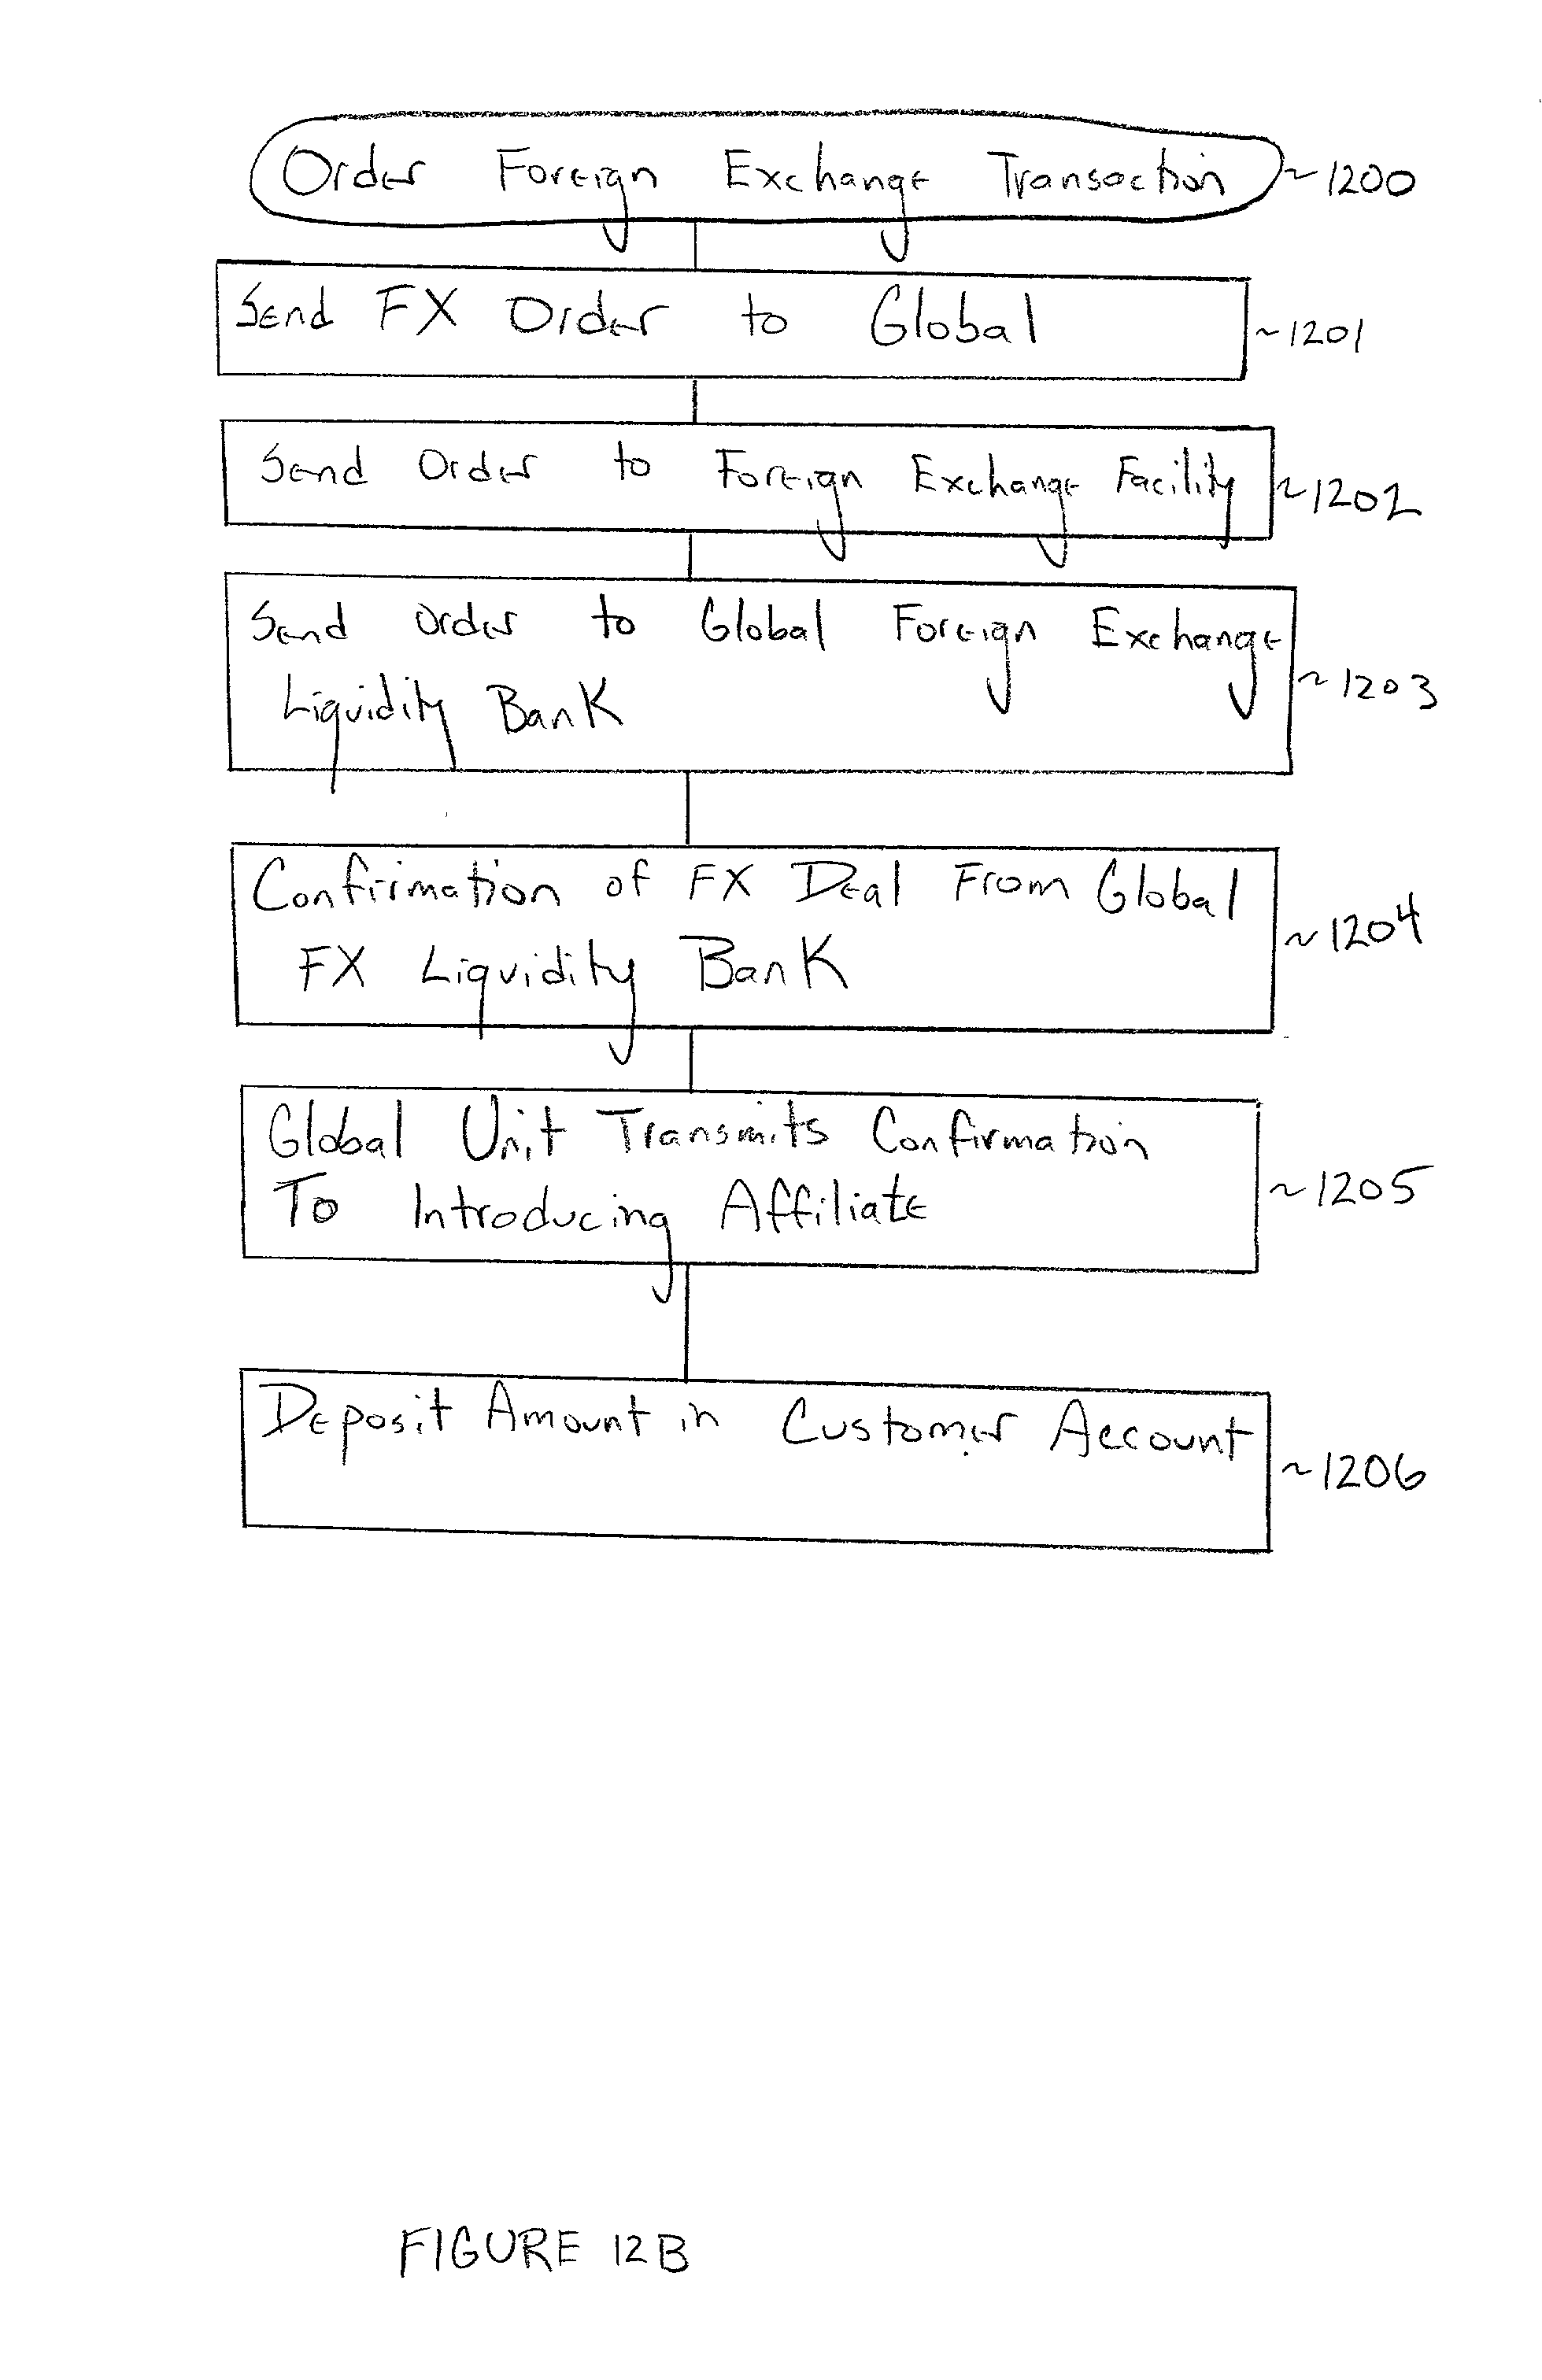 Order Foreign Exchange Transaction ~1200
Send FX Order to Global ~1201
Send Order to Foreign Exchange Facility ~1202
Send Order to Global Foreign Exchange
Liquidity Bank ~1203
Confirmation of FX Deal From Global
FX Liquidity Bank ~1204
Global Unit Transmits Confirmation
To Introducing Affiliate ~1205
Deposit Amount in Customer Account ~1206
FIGURE 12B